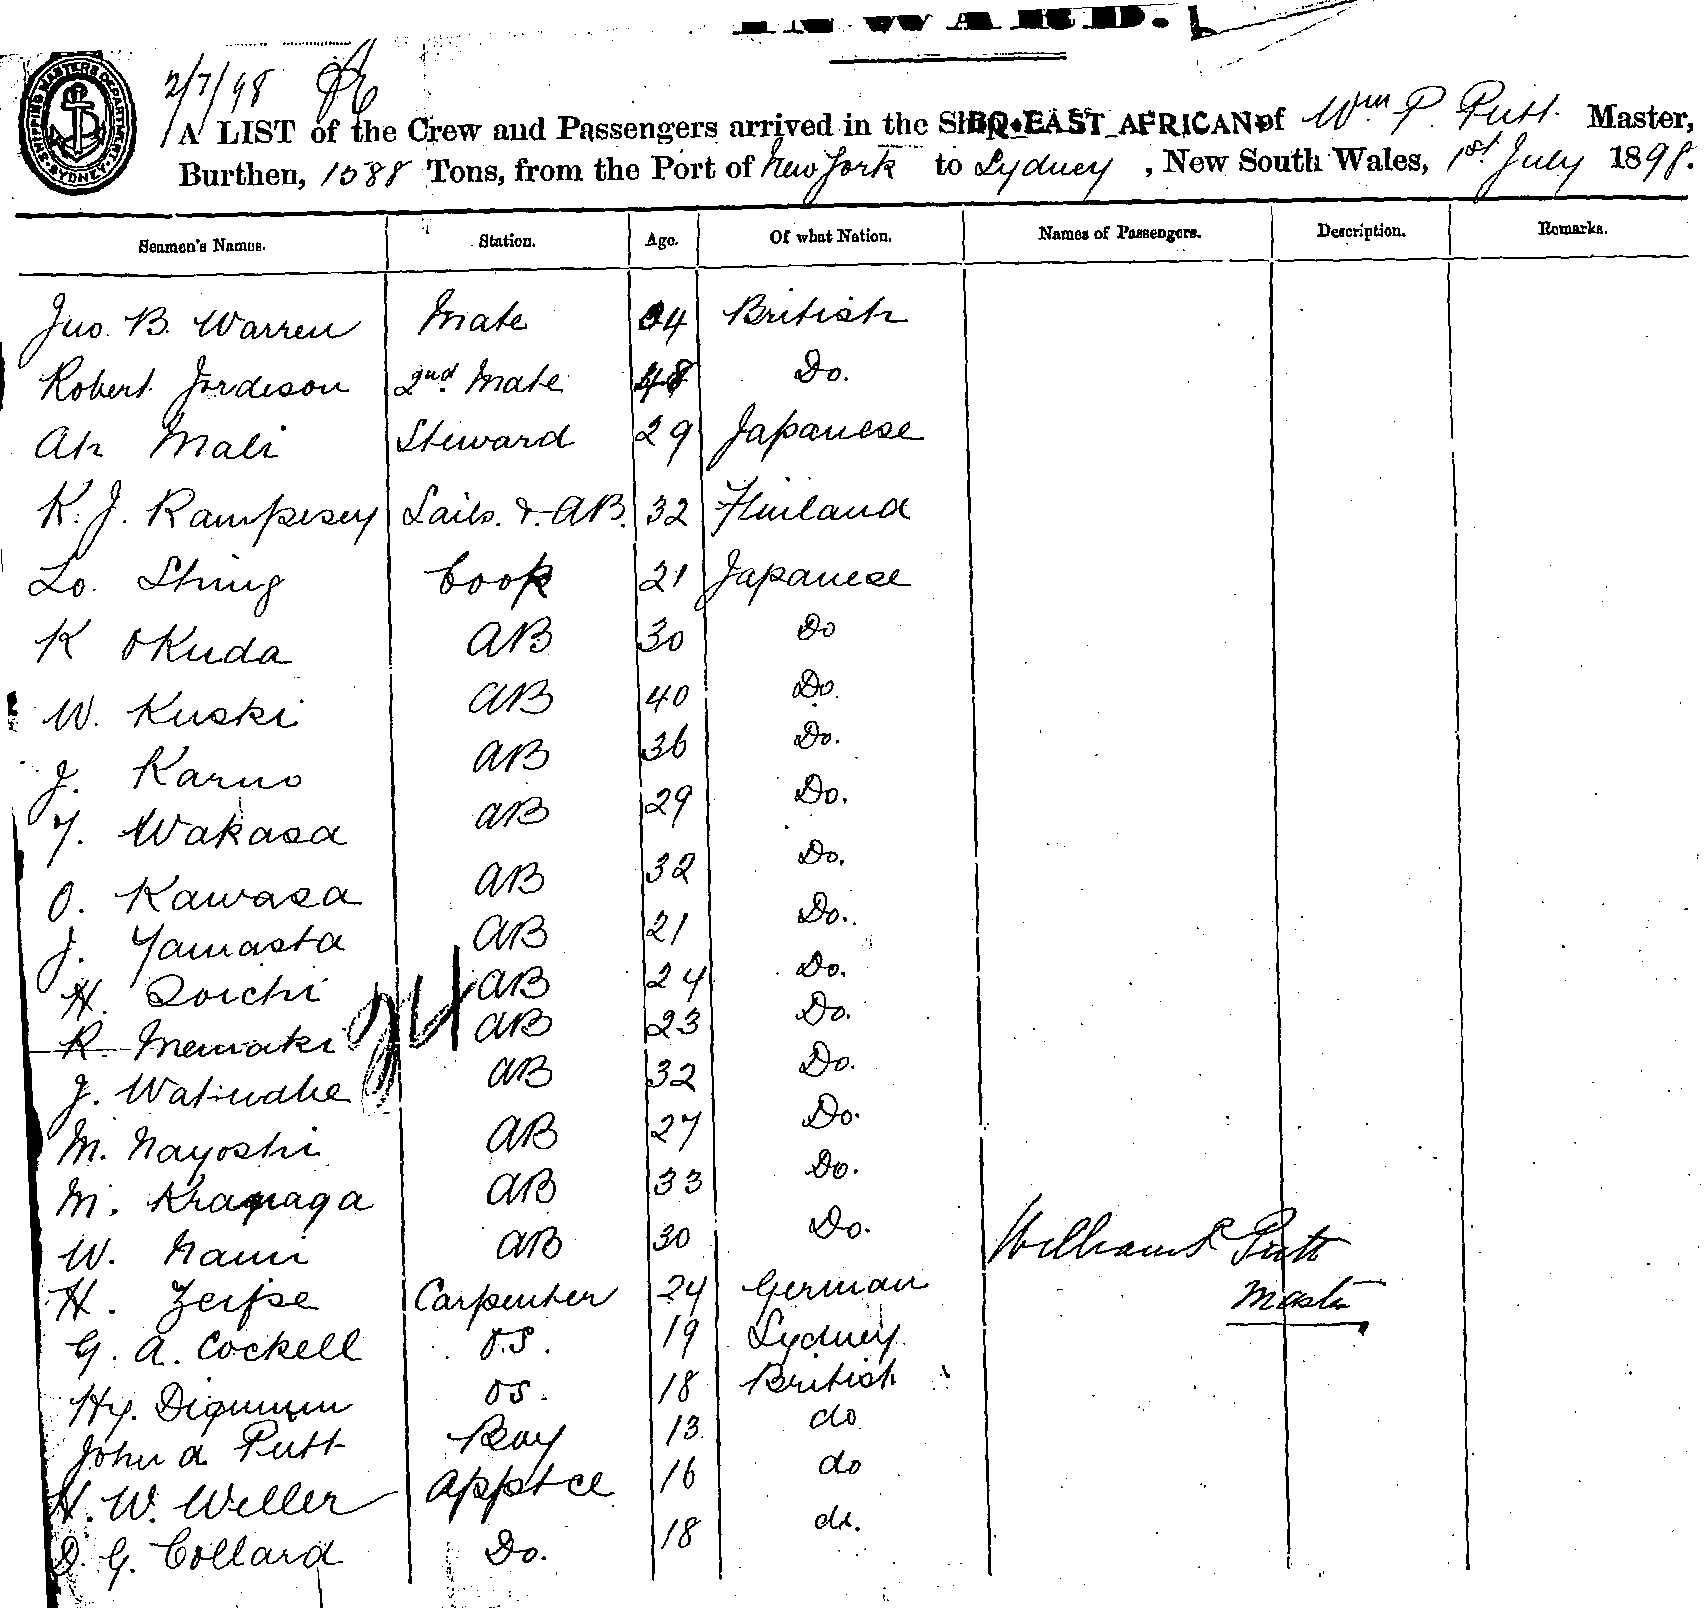 INWARD.
SHIPPING MASTERS DEPARTMENT SYDNEY
2/7/98
A LIST of the Crew and Passengers arrived in the Ship BQ. EAST AFRICAN of Wm P. Putt. Master,
Burthen, 1088 Tons, from the Port of New York to Sydney, New South Wales, 1st July 1898.
Seamen's Names. Station. Age. Of what Nation. Names of Passengers. Description. Remarks.
Jno. B. Warren Mate 4 British
Robert Jordeson 2nd Mate 48 Do.
Ah Mali Steward 29 Japanese
K. J. Sails. & AB. 32 Finland
Lo. Shing Cook 21 Japanese
K Okuda AB 30 Do
W. Kuski AB 40 Do.
J. Karno AB 36 Do.
Y. Wakasa AB 29 Do.
O. Kawasa AB 32 Do.
J. Yamasta AB 21 Do.
H. AB 24 Do.
R. Memaki AB 23 Do.
J. AB 32 Do.
M. Nayoshi AB 27 Do.
M. AB 33 Do.
W. Nami AB 30 Do.
William P Putt
H. Carpenter 24 German
Master
G. A. Cockell O.S. 19 Sydney
Hy. OS. 18 British
John A Putt Boy 13 do
H. W. Weller Apptce 16 do
D. G. Collard Do. 18 do.